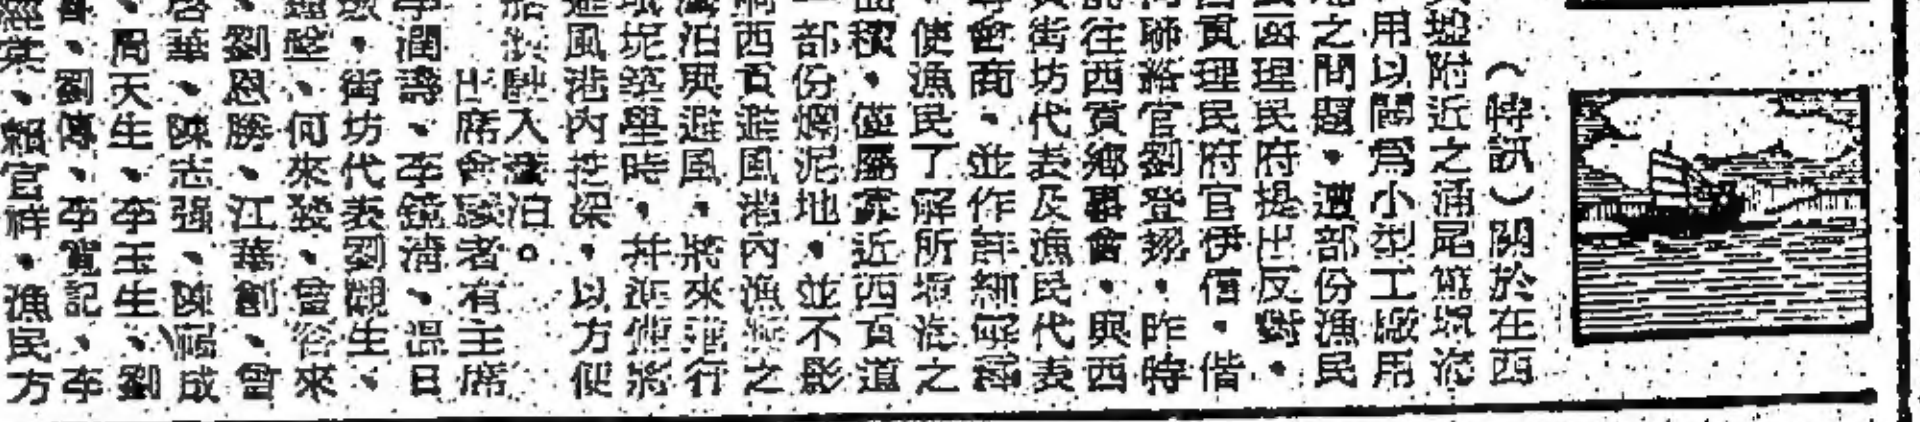 （特訊）關於在西
附近之涌尾篤填海
用以闢爲小型工廠用
之問題，遭部份漁民
函理民府提出反對。
貢理民府官伊信，偕
聯絡官劉登翔，昨特
往西貢鄉事會，與西
街坊代表及漁民代表
會商，並作詳細解釋
使漁民了解所填海之
面積，僅屬靠近西貢道
一部份爛泥地，並不影
響西貢避風港內漁船之
灣泊與避風，將來進行
填坭築壆時，并派
避風港內挖深，以方便
入灣泊。
出席會議者有主席
李潤壽，李鏡清、溫日
，街坊代表劉觀生、
、何來發、曾容來
、劉恩勝、江華創、曾
華、陳志強、陳福成
、周天生、李玉生、劉
、劉傳、李冀記、李
、賴官祥，漁民方